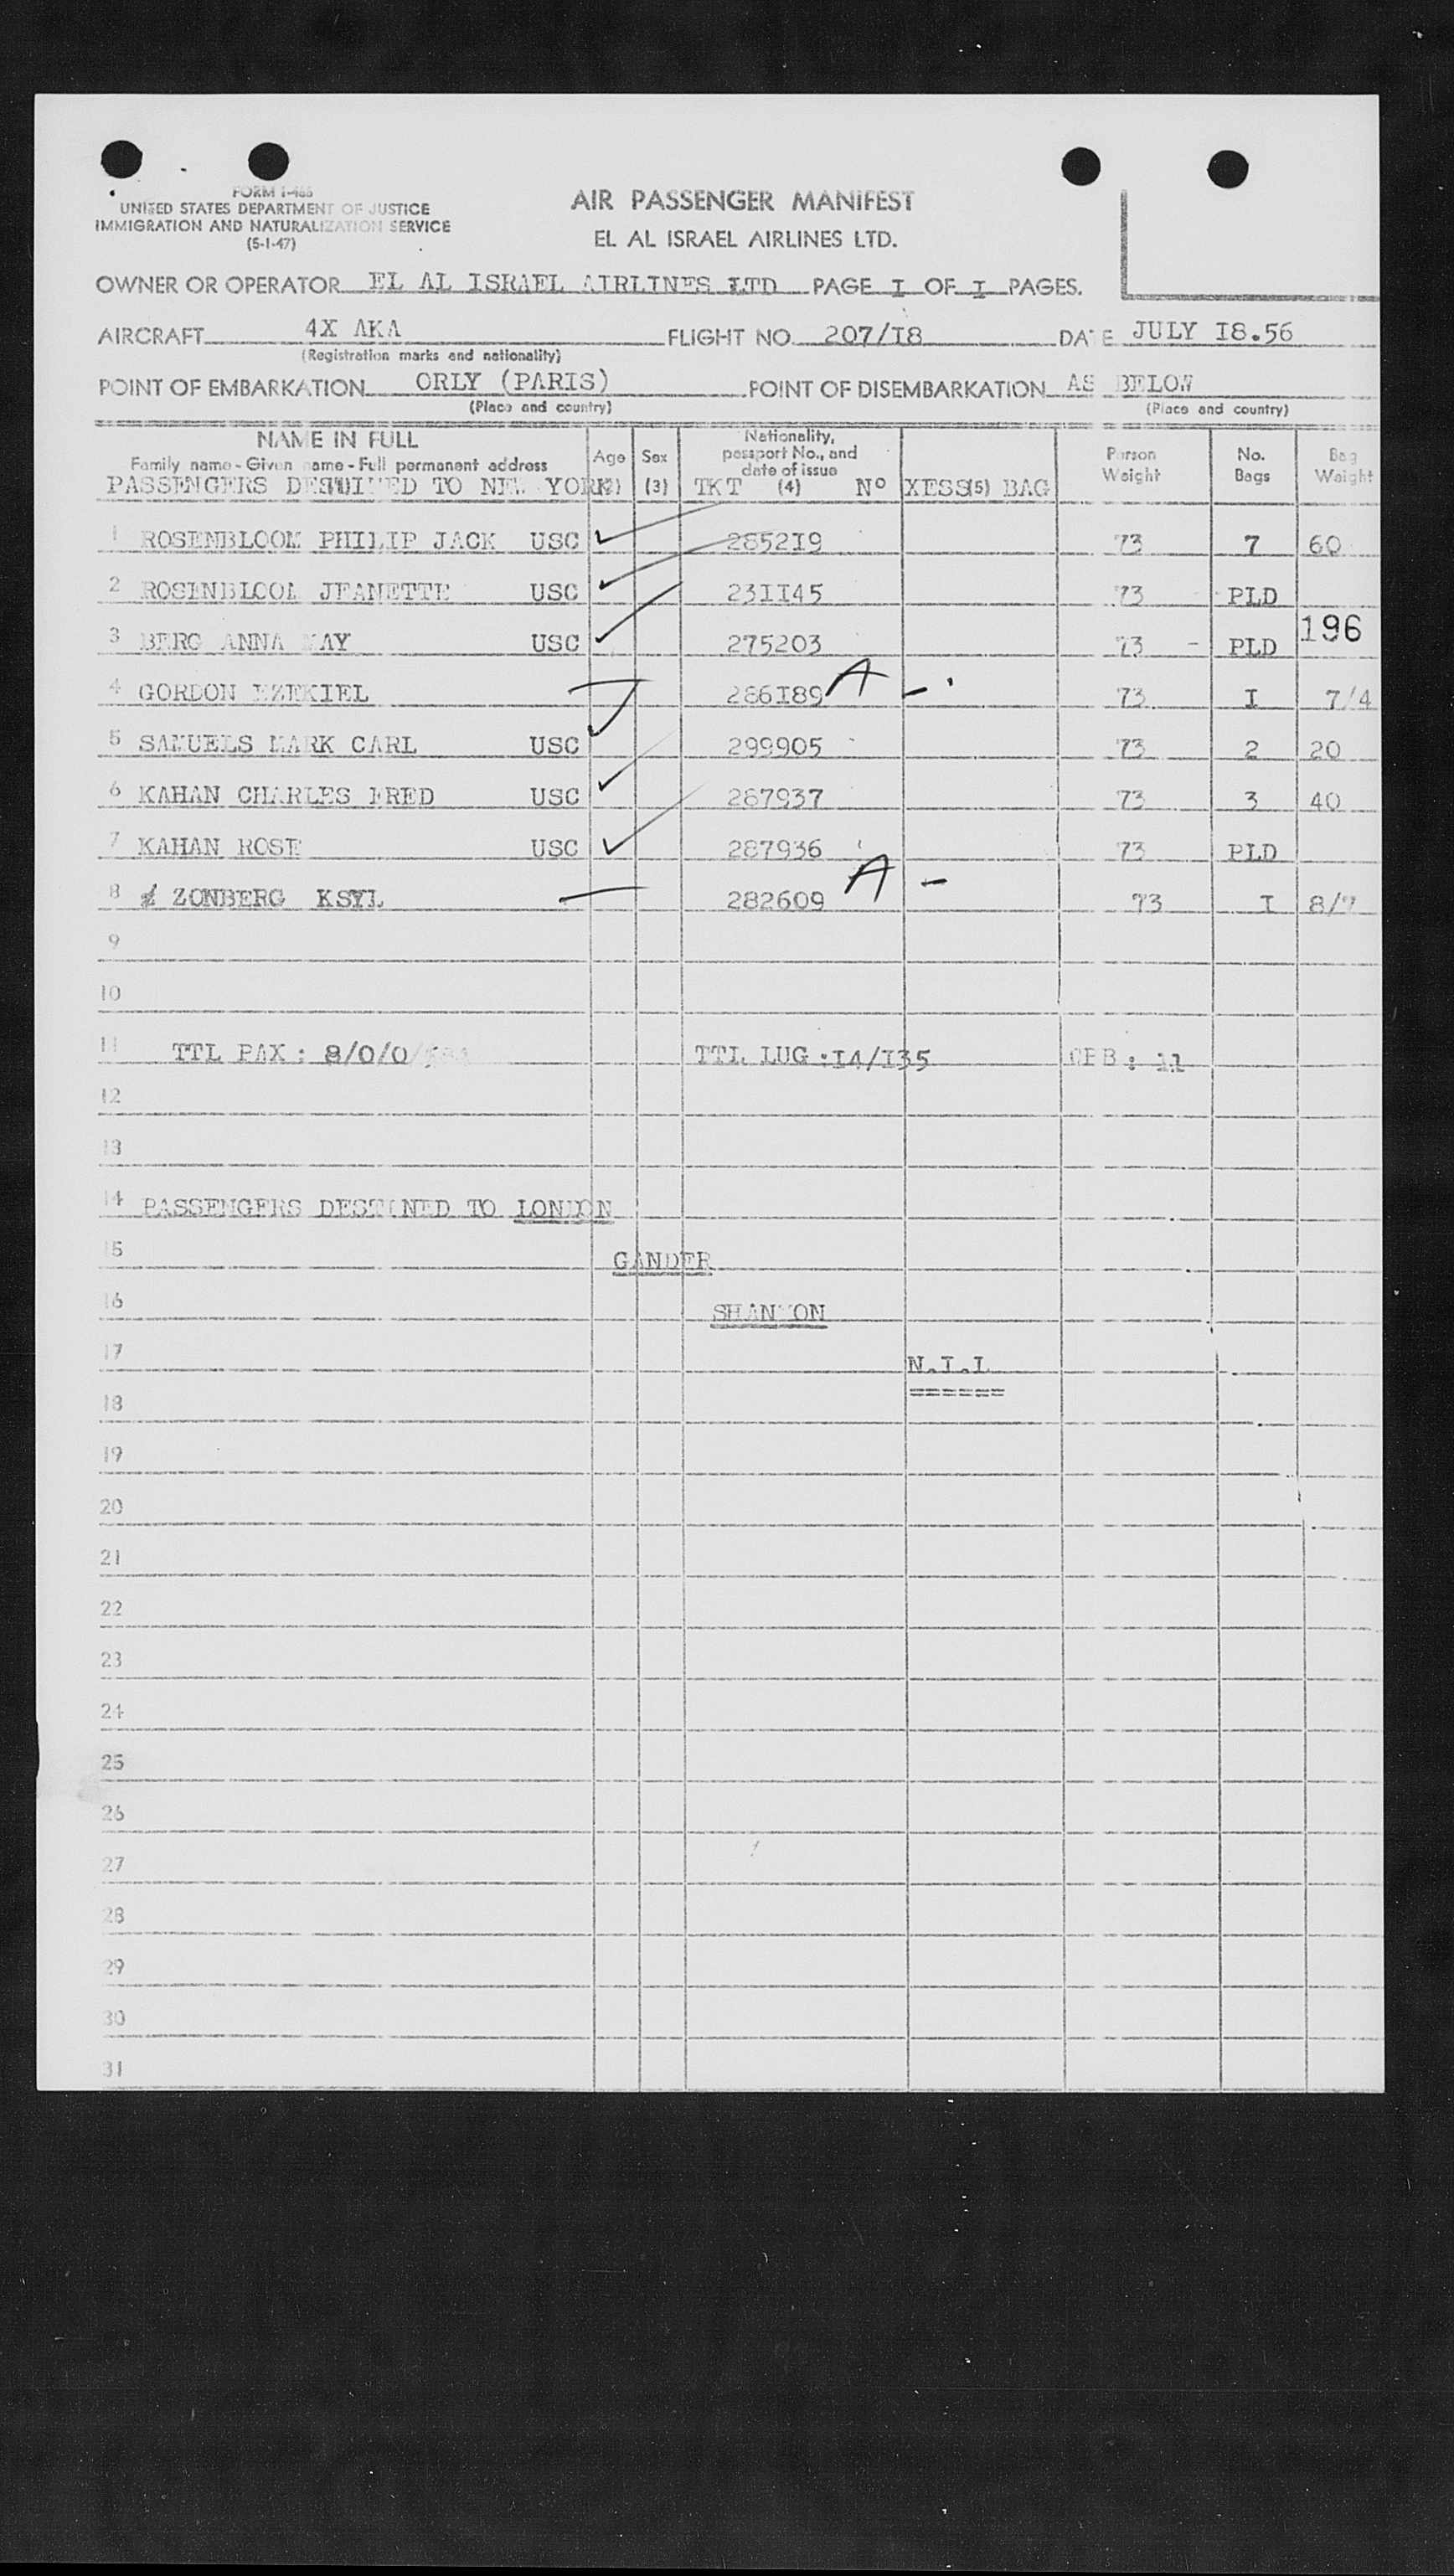 FORM I-466
UNITED STATES DEPARTMENT OF JUSTICE
IMMIGRATION AND NATURALIZATION SERVICE
(5-1-47)
AIR PASSENGER MANIFEST
EL AL ISRAEL AIRLINES LTD.
OWNER OR OPERATOR EL AL ISRAEL AIRLINES LTD PAGE I OF I PAGES.
AIRCRAFT 4X AKA FLIGHT NO. 207/I8 DATE JULY I8.56
(Registration marks and nationality)
POINT OF EMBARKATION ORLY (PARIS) POINT OF DISEMBARKATION AS BELOW
(Place and country) (Place and country)
NAME IN FULL Age Sex Nationality, passport No., and date of issue Person Weight No. Bags Bag Weight
Family name - Given name - Full permanent address
PASSENGERS TO NEW YORK (3) TKT (4) Nº XESS (5) BAG
1 ROSENBLOOM PHILIP JACK USC 2852I9 73 7 60
2 ROSENBLOOM JEANETTE USC 23II45 73 PLD
3 BERG ANNA MAY USC 275203 73 - PLD 196
4 GORDON EZEKIEL 286I89 A - 73 I 7/4
5 SAMUELS MARK CARL USC 299905 73 2 20
6 KAHAN CHARLES FRED USC 287937 73 3 40
7 KAHAN ROSE USC 287936 73 PLD
8 ZONBERG KSYL 282609 A - 73 I 8/7
9
10
11 TTL PAX : 8/0/0 TTL LUG : I4/I35 : 11
12
13
14 PASSENGERS DESTINED TO LONDON
15 GANDER
16 SHANNON
17 N.I.L
18 ======
19
20
21
22
23
24
25
26
27
28
29
30
31